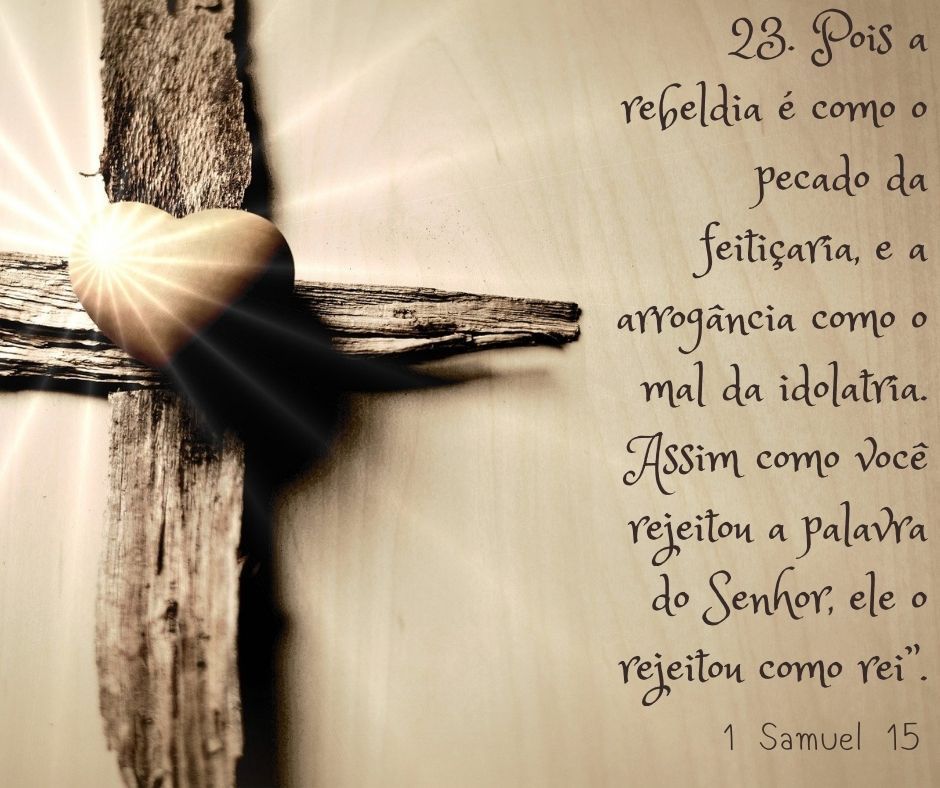 23. Pois a
rebeldia é como o
pecado da
feitiçaria, e a
arrogância como o
mal da idolatria.
Assim como você
rejeitou a palavra
do Senhor, ele o
rejeitou como rei”.
1 Samuel 15